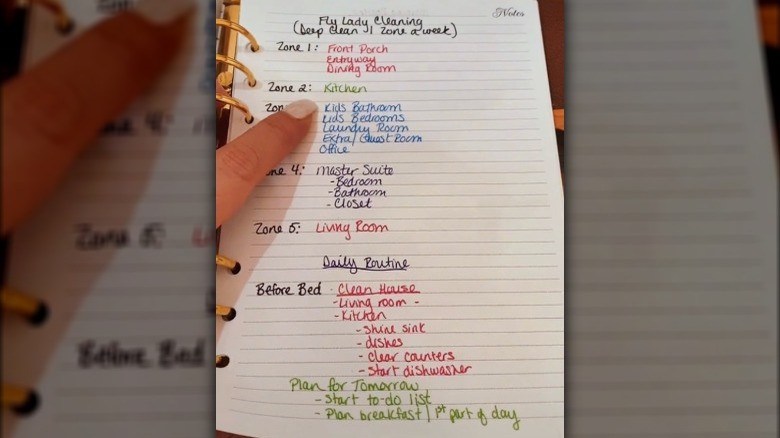 Notes
Fly Lady Cleaning
(Deep Clean 1 Zone a week)
Zone 1: Front Porch
Entryway
Dining Room
Zone 2: Kitchen
Zon Kids Bathroom
Kids Bedrooms
Laundry Room
Extra/Guest Room
Office
ne 4: Master Suite
- Bedroom
- Bathroom
- Closet
Zone 5: Living Room
Daily Routine
Before Bed - Clean House
- Living room -
- Kitchen
- Shine sink
- dishes
- Clear counters
- Start dishwasher
Plan for Tomorrow
- Start to-do list
- Plan breakfast / 1st part of day